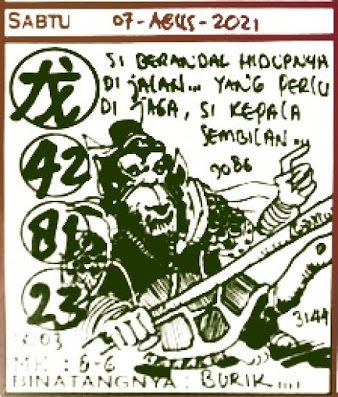 SABTU 07-AGUS-2021
SI BERANDAL HIDUPNYA
DI JALAN... YANG PERLU
DI JAGA, SI KEPALA
SEMBILAN...
9086
龙
42
81
23
3144
MK : 6-6
BINATANGNYA : BURIK....